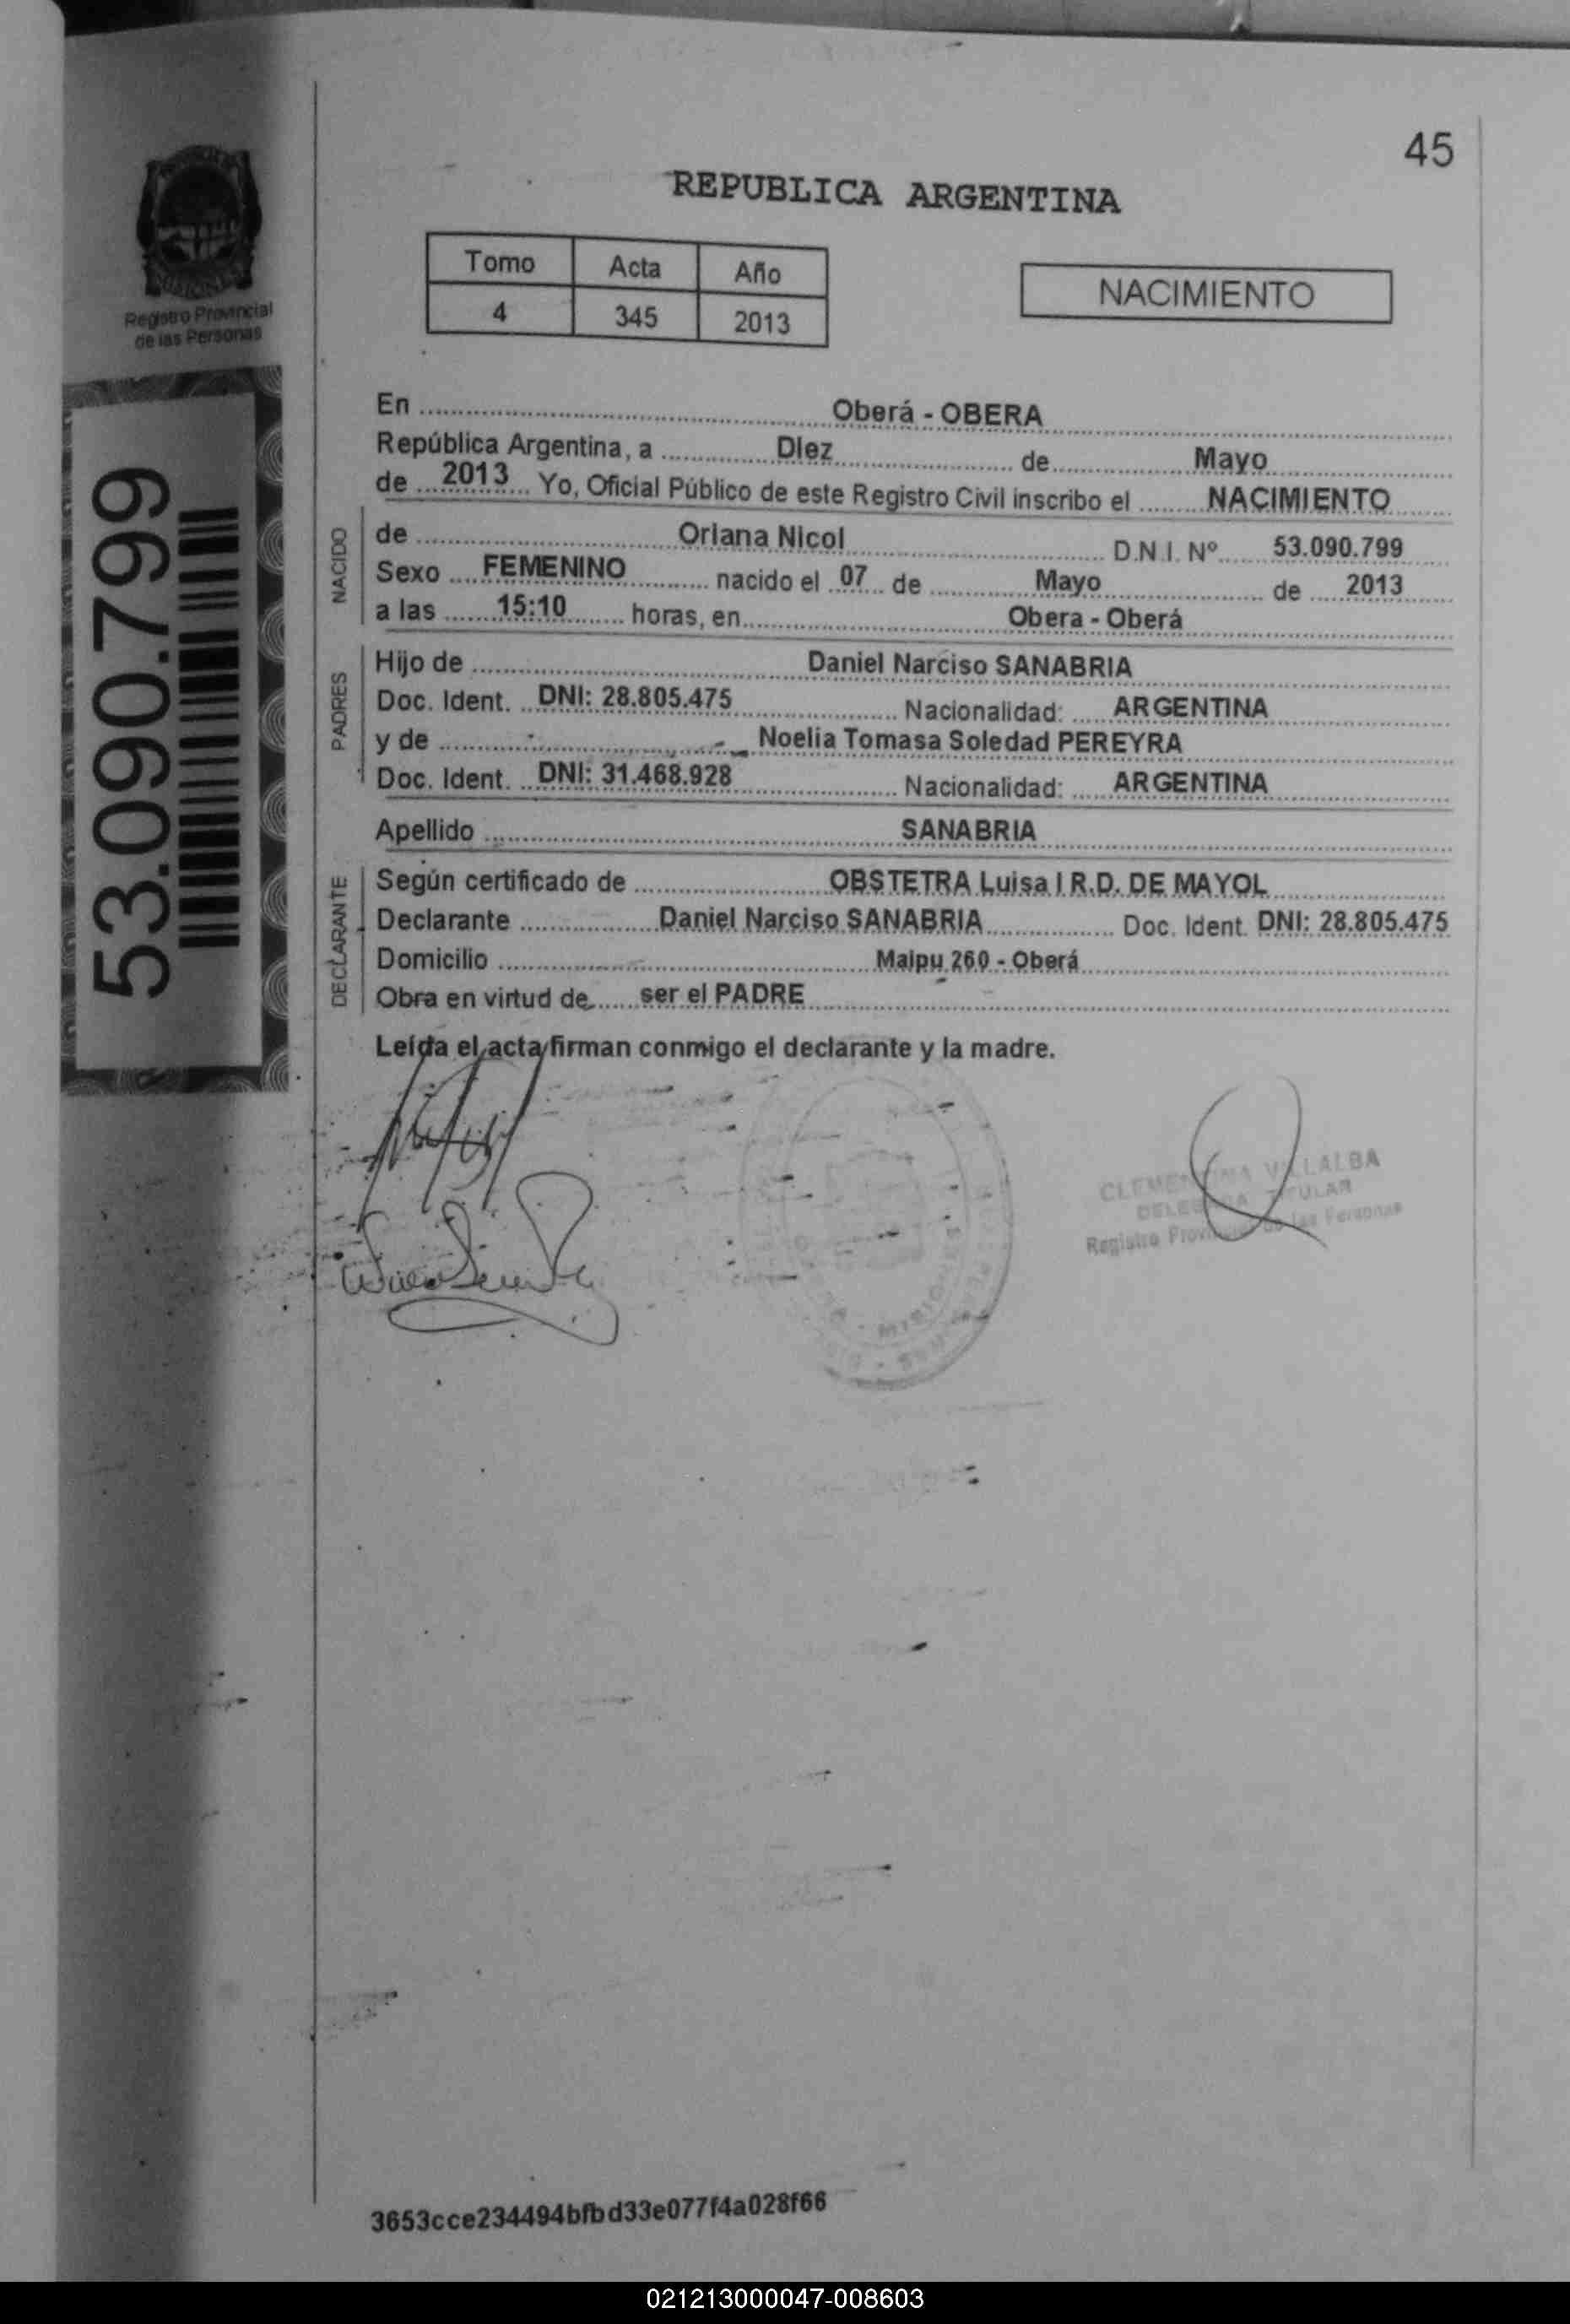 45
REPUBLICA ARGENTINA
Tomo Acta Año
4 345 2013
NACIMIENTO
Registro Provincial
de las Personas
53.090.799
En Oberá - OBERA
República Argentina, a DIez de Mayo
de 2013 Yo, Oficial Público de este Registro Civil inscribo el NACIMIENTO
NACIDO
de Orlana Nicol D.N.I. Nº 53.090.799
Sexo FEMENINO nacido el 07 de Mayo de 2013
a las 15:10 horas, en Obera - Oberá
PADRES
Hijo de Daniel Narciso SANABRIA
Doc. Ident. DNI: 28.805.475 Nacionalidad: ARGENTINA
y de Noelia Tomasa Soledad PEREYRA
Doc. Ident. DNI: 31.468.928 Nacionalidad: ARGENTINA
Apellido SANABRIA
DECLARANTE
Según certificado de OBSTETRA Luisa I R.D. DE MAYOL
Declarante Daniel Narciso SANABRIA Doc. Ident. DNI: 28.805.475
Domicilio Maipu 260 - Oberá
Obra en virtud de ser el PADRE
Leída el acta firman conmigo el declarante y la madre.
CLEMENTINA VILLALBA
DELEGADA TITULAR
Registro Provincial de las Personas
3653cce234494bfbd33e077f4a028f66
021213000047-008603